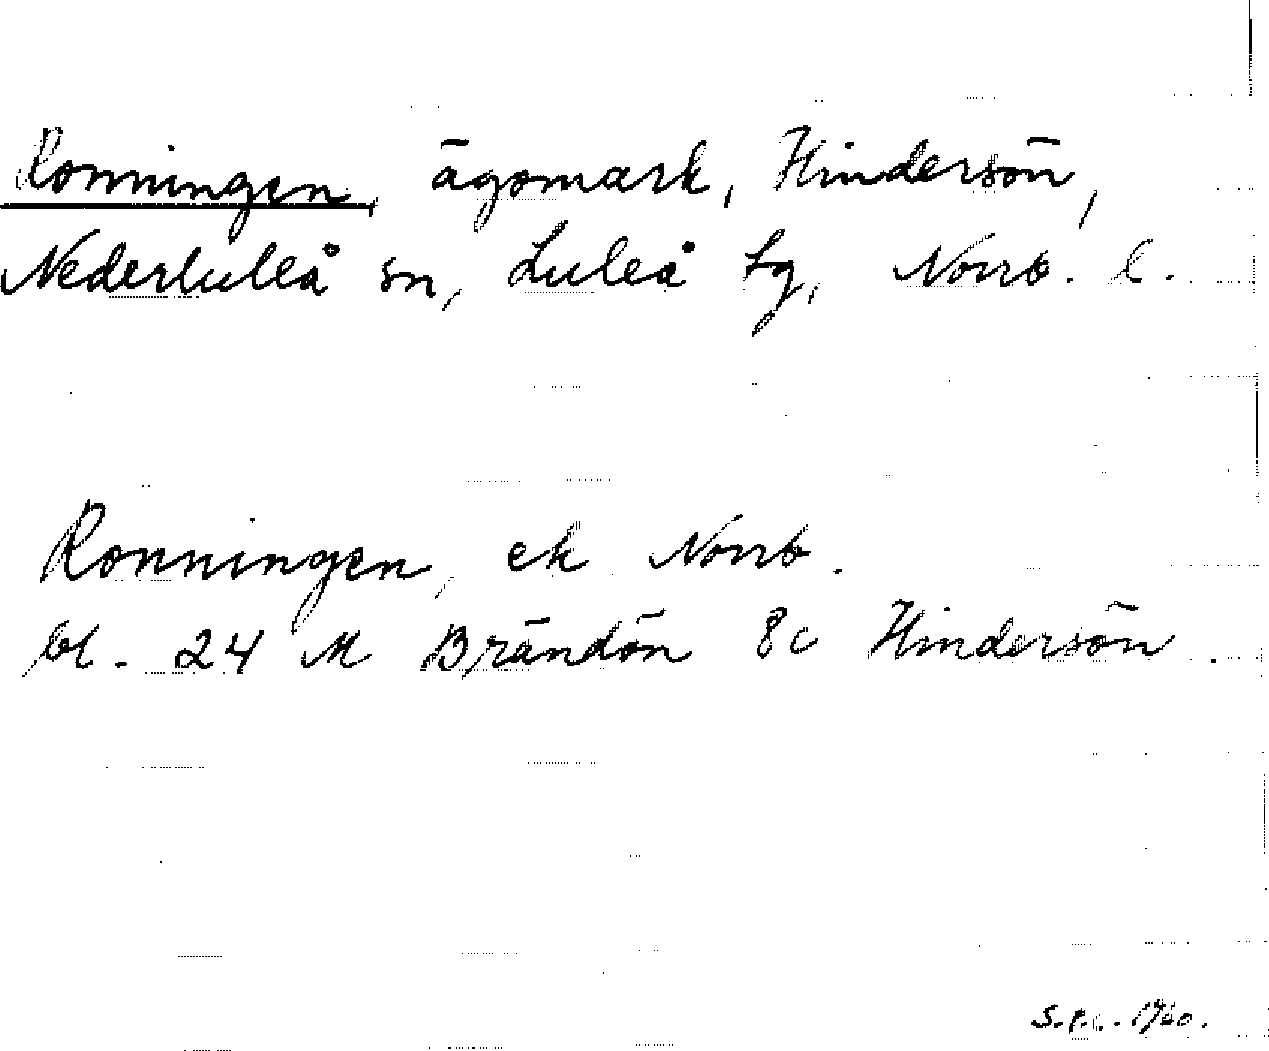 Ronningen, ägomark, Hindersön,
Nederluleå sn, Luleå tg, Norrb. l.
Ronningen, ek Norrb.
bl. 24 M Brändön 8c Hindersön.
1960.